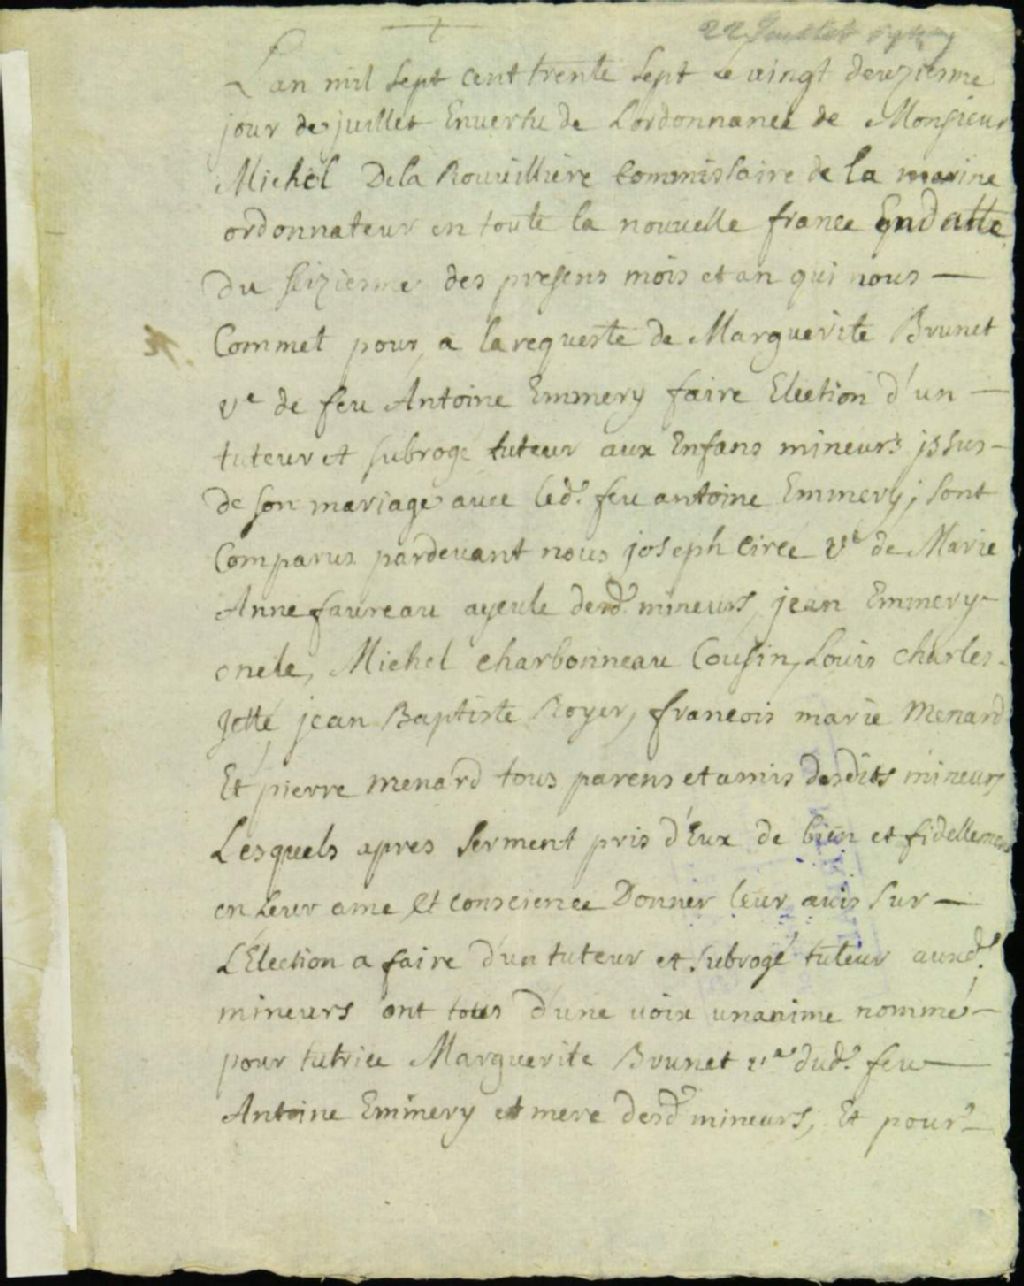 22 Juillet
Lan mil sept cent trente sept Le vingt deuziesme
jour de juillet Envertu de Lordonnance de Monsieur
Michel Dela Rouvilliere Commissaire de la marine
ordonnateur en toute la nouvelle france En datte
du seiziesme des presens mois et an qui nous —
Commet pour, a la requeste de Marguerite Brunet
ve de feu Antoine Emmery faire Election d'un —
tuteur et subrogé tuteur aux Enfans mineurs issus —
de son mariage avec led. feu antoine Emmery; sont
Comparus pardevant nous joseph circé ve de Marie
Anne favreau ayeule desd. mineurs, jean Emmery
oncle, Michel charbonneau Cousin, Louis charles
jetté jean Baptiste Royer, francois marie Menard
Et pierre menard tous parens et amis desdits mineurs
Lesquels apres serment pris d'Eux de bien et fidellement
en Leur ame et conscience Donner leur avis sur —
L'Election a faire d'un tuteur et subrogé tuteur auxd.
mineurs ont tous d'une voix unanime nommé —
pour tutrice Marguerite Brunet ve dud. feu —
Antoine Emmery et mere desd. mineurs, Et pour —